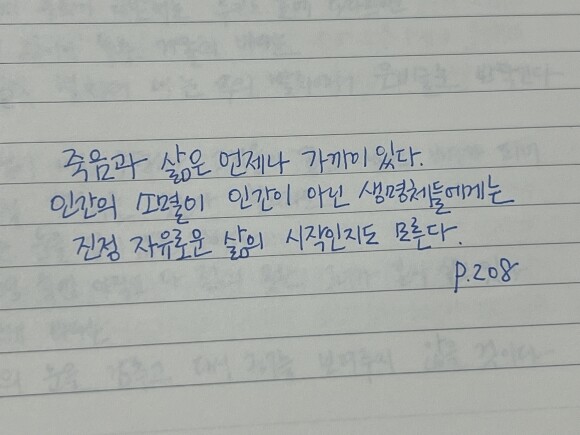 죽음과 삶은 언제나 가까이 있다.
인간의 소멸이 인간이 아닌 생명체들에게는
진정 자유로운 삶의 시작인지도 모른다.
p.208